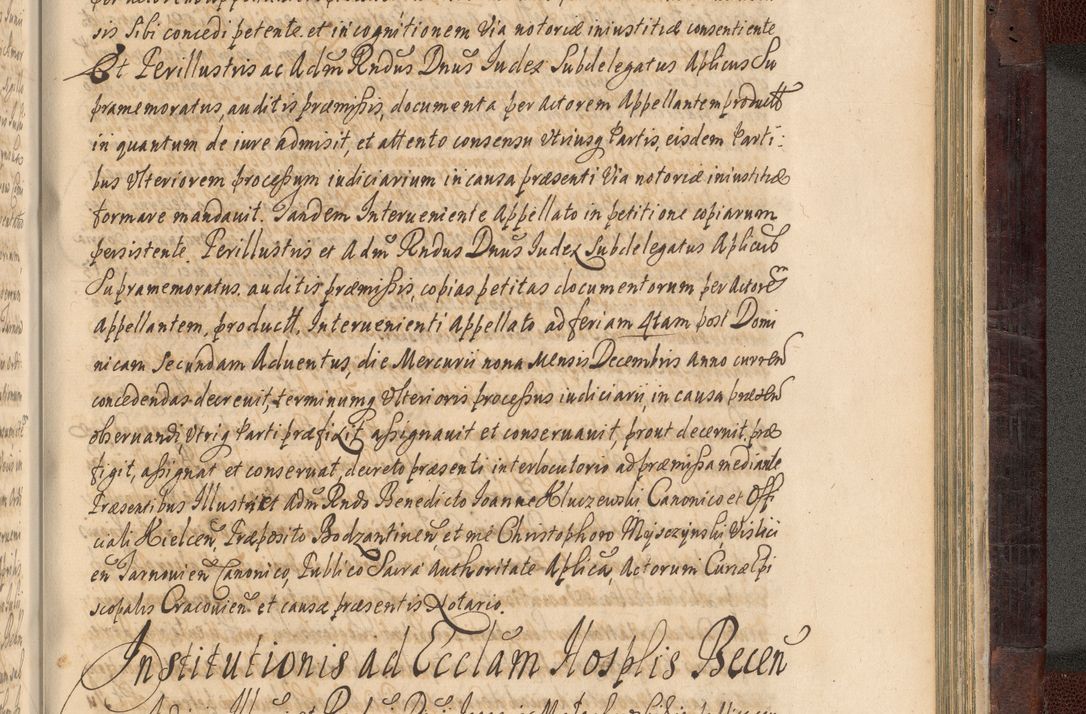 sis Sibi concedi petente et in cognitionem Via notoriæ iniustitiæ consentiente
Et Perillustris ac Adm̃ Rndus Dnus Iudex Subdelegatus Aplicus Su
pramemoratus, auditis præmissis, documenta per Actorem Appellantem producta
in quantum de iure admisit, et attento consensu Vtriusq Partis, eisdem Parti:
bus Vlteriorem processum iudiciarium in causa præsenti Via notoriæ iniustitiæ
formare mandauit. Tandem Interueniente Appellato in petitione copiarum
persistente. Perillustris et Adm̃ Rndus Dnus Iudex Subdelegatus Aplicus
Supramemoratus, auditis præmissis, copias petitas documentorum per Actorem
Appellantem productt. Interuenienti Appellato ad feriam 4tam post Domi
nicam Secundam Aduentus, die Mercurii nona Mensis Decembris anno curren
concedendas decreuit, terminumq Vlterioris processus iudiciarii, in causa præsen
obseruandi, Vtriq Parti præfixit assignauit et conseruauit, prout decernit præ
figit, assignat et conseruat, decreto præsenti interlocutorio ad præmissa mediante
Præsentibus Illustri et Adm̃ Rndo Benedicto Ioanne Kluczewski Canonico et Offi
ciali Kielcen, Præposito Bodzantinen, et me Christophoro Mysczynski Vislici
en Tarnouien Canonico, Publico Sacra Authoritate Aplica, Actorum Curiæ Epi
scopalis Cracouien et causæ præsentis Notario.
Institutionis ad Ecclam Hosplis Becen